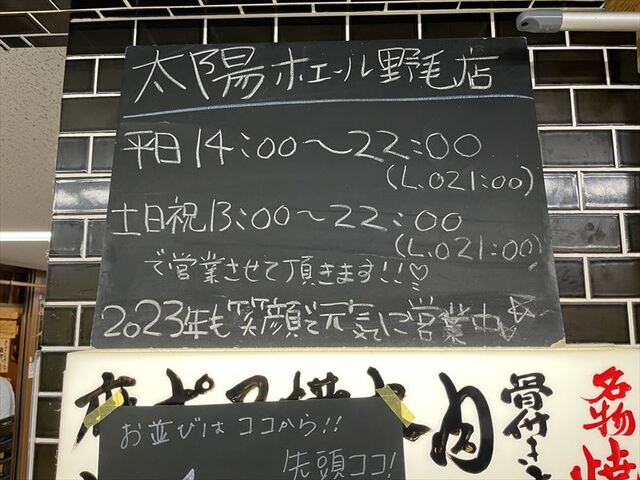 太陽ホエール野毛店
平日14:00～22:00
(L.O21:00)
土日祝13:00～22:00
(L.O21:00)
で営業させて頂きます!!♡
2023年も笑顔で元気に営業中
お並びは ココから!!
先頭ココ!
骨付き
名物焼